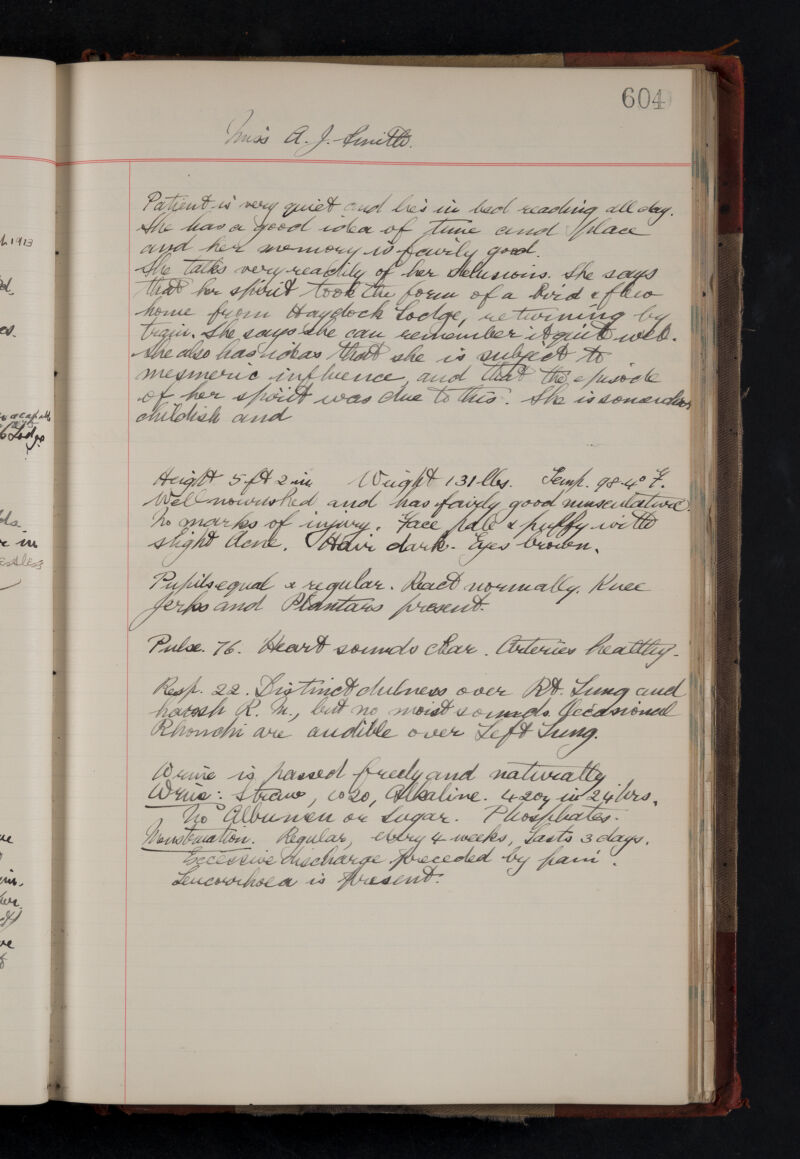 604
Miss A. J. Smith.
Patient is very quiet and lies in bed reading all day.
She has a good idea of time and place
and her memory is fairly good.
She talks very readily of her delusions. She says
that her spirit took the form of a bird & flew
home from Haydock Lodge, returning by
train. She says she can remember it quite well.
She also has ideas that she is subject to
mesmeric influence, and that the episode
of her spirit was due to this. She is somewhat
childish and
Height 5 ft 2 in Weight 131 lbs. Temp. 98.4° F.
Well nourished and has fairly good musculature.
No marks of injury. Face pale & puffy with
slight Acne. Hair dark. Eyes brown.
Pupils equal & regular. React normally. Knee
Jerks and Plantars present.
Pulse. 76. Heart sounds clear. Arteries healthy.
Resp. 22. Distinct dulness over Rt. Lung and
harsh R. M., but no moist sounds. Occasional
Rhonchi are audible over Left Lung.
Urine is passed freely and naturally
Urine: Straw, 1020, Alkaline. 42 oz in 24 hrs.
No Albumen or Sugar. Phosphates.
Menstruation. Regular, every 4 weeks, Lasts 3 days.
Excessive discharge preceded by pain.
Leucorrhoea is present.
1913
Lodge